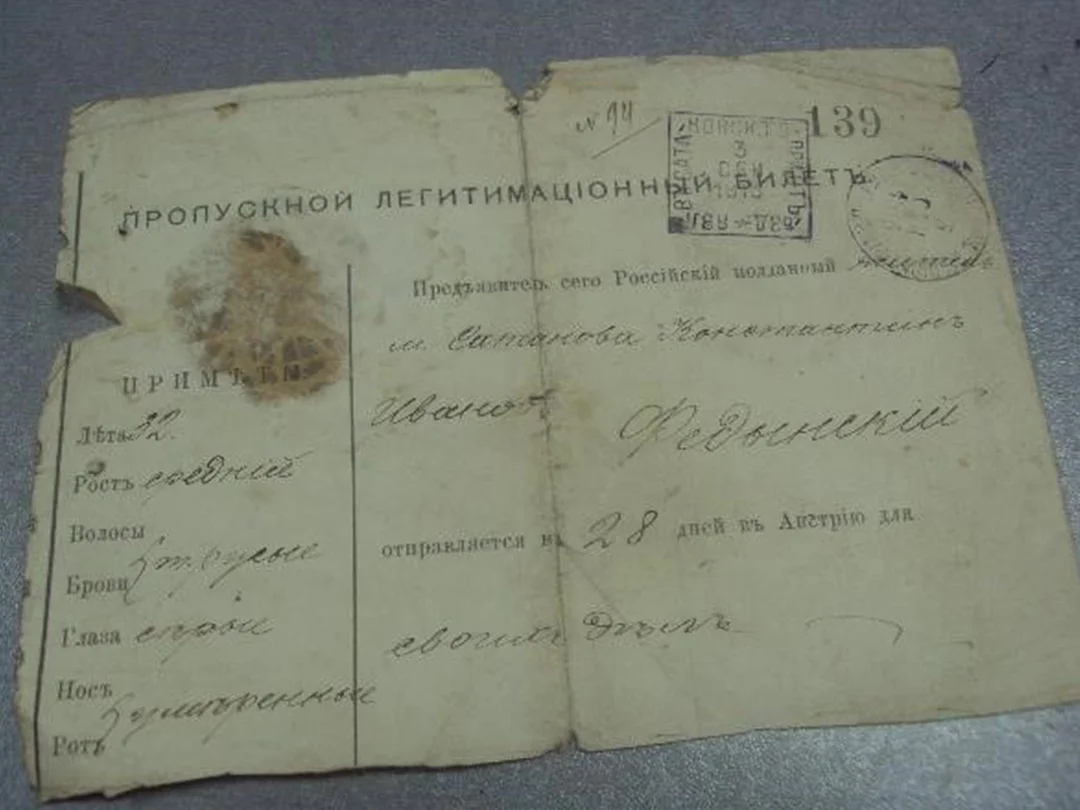 № 94
139
ПРОПУСКНОЙ ЛЕГИТИМАЦІОННЫЙ БИЛЕТЪ
3
ПРИМѢТЫ
Лѣта 32.
Ростъ средній
Волосы
Брови т. русые
Глаза сѣрые
Носъ
Ротъ умѣренные
Предъявитель сего Россійскій подданный
м. Сатанова Константинъ
Иванов
Федынскій
отправляется на 28 дней въ Австрію для
своихъ дѣлъ